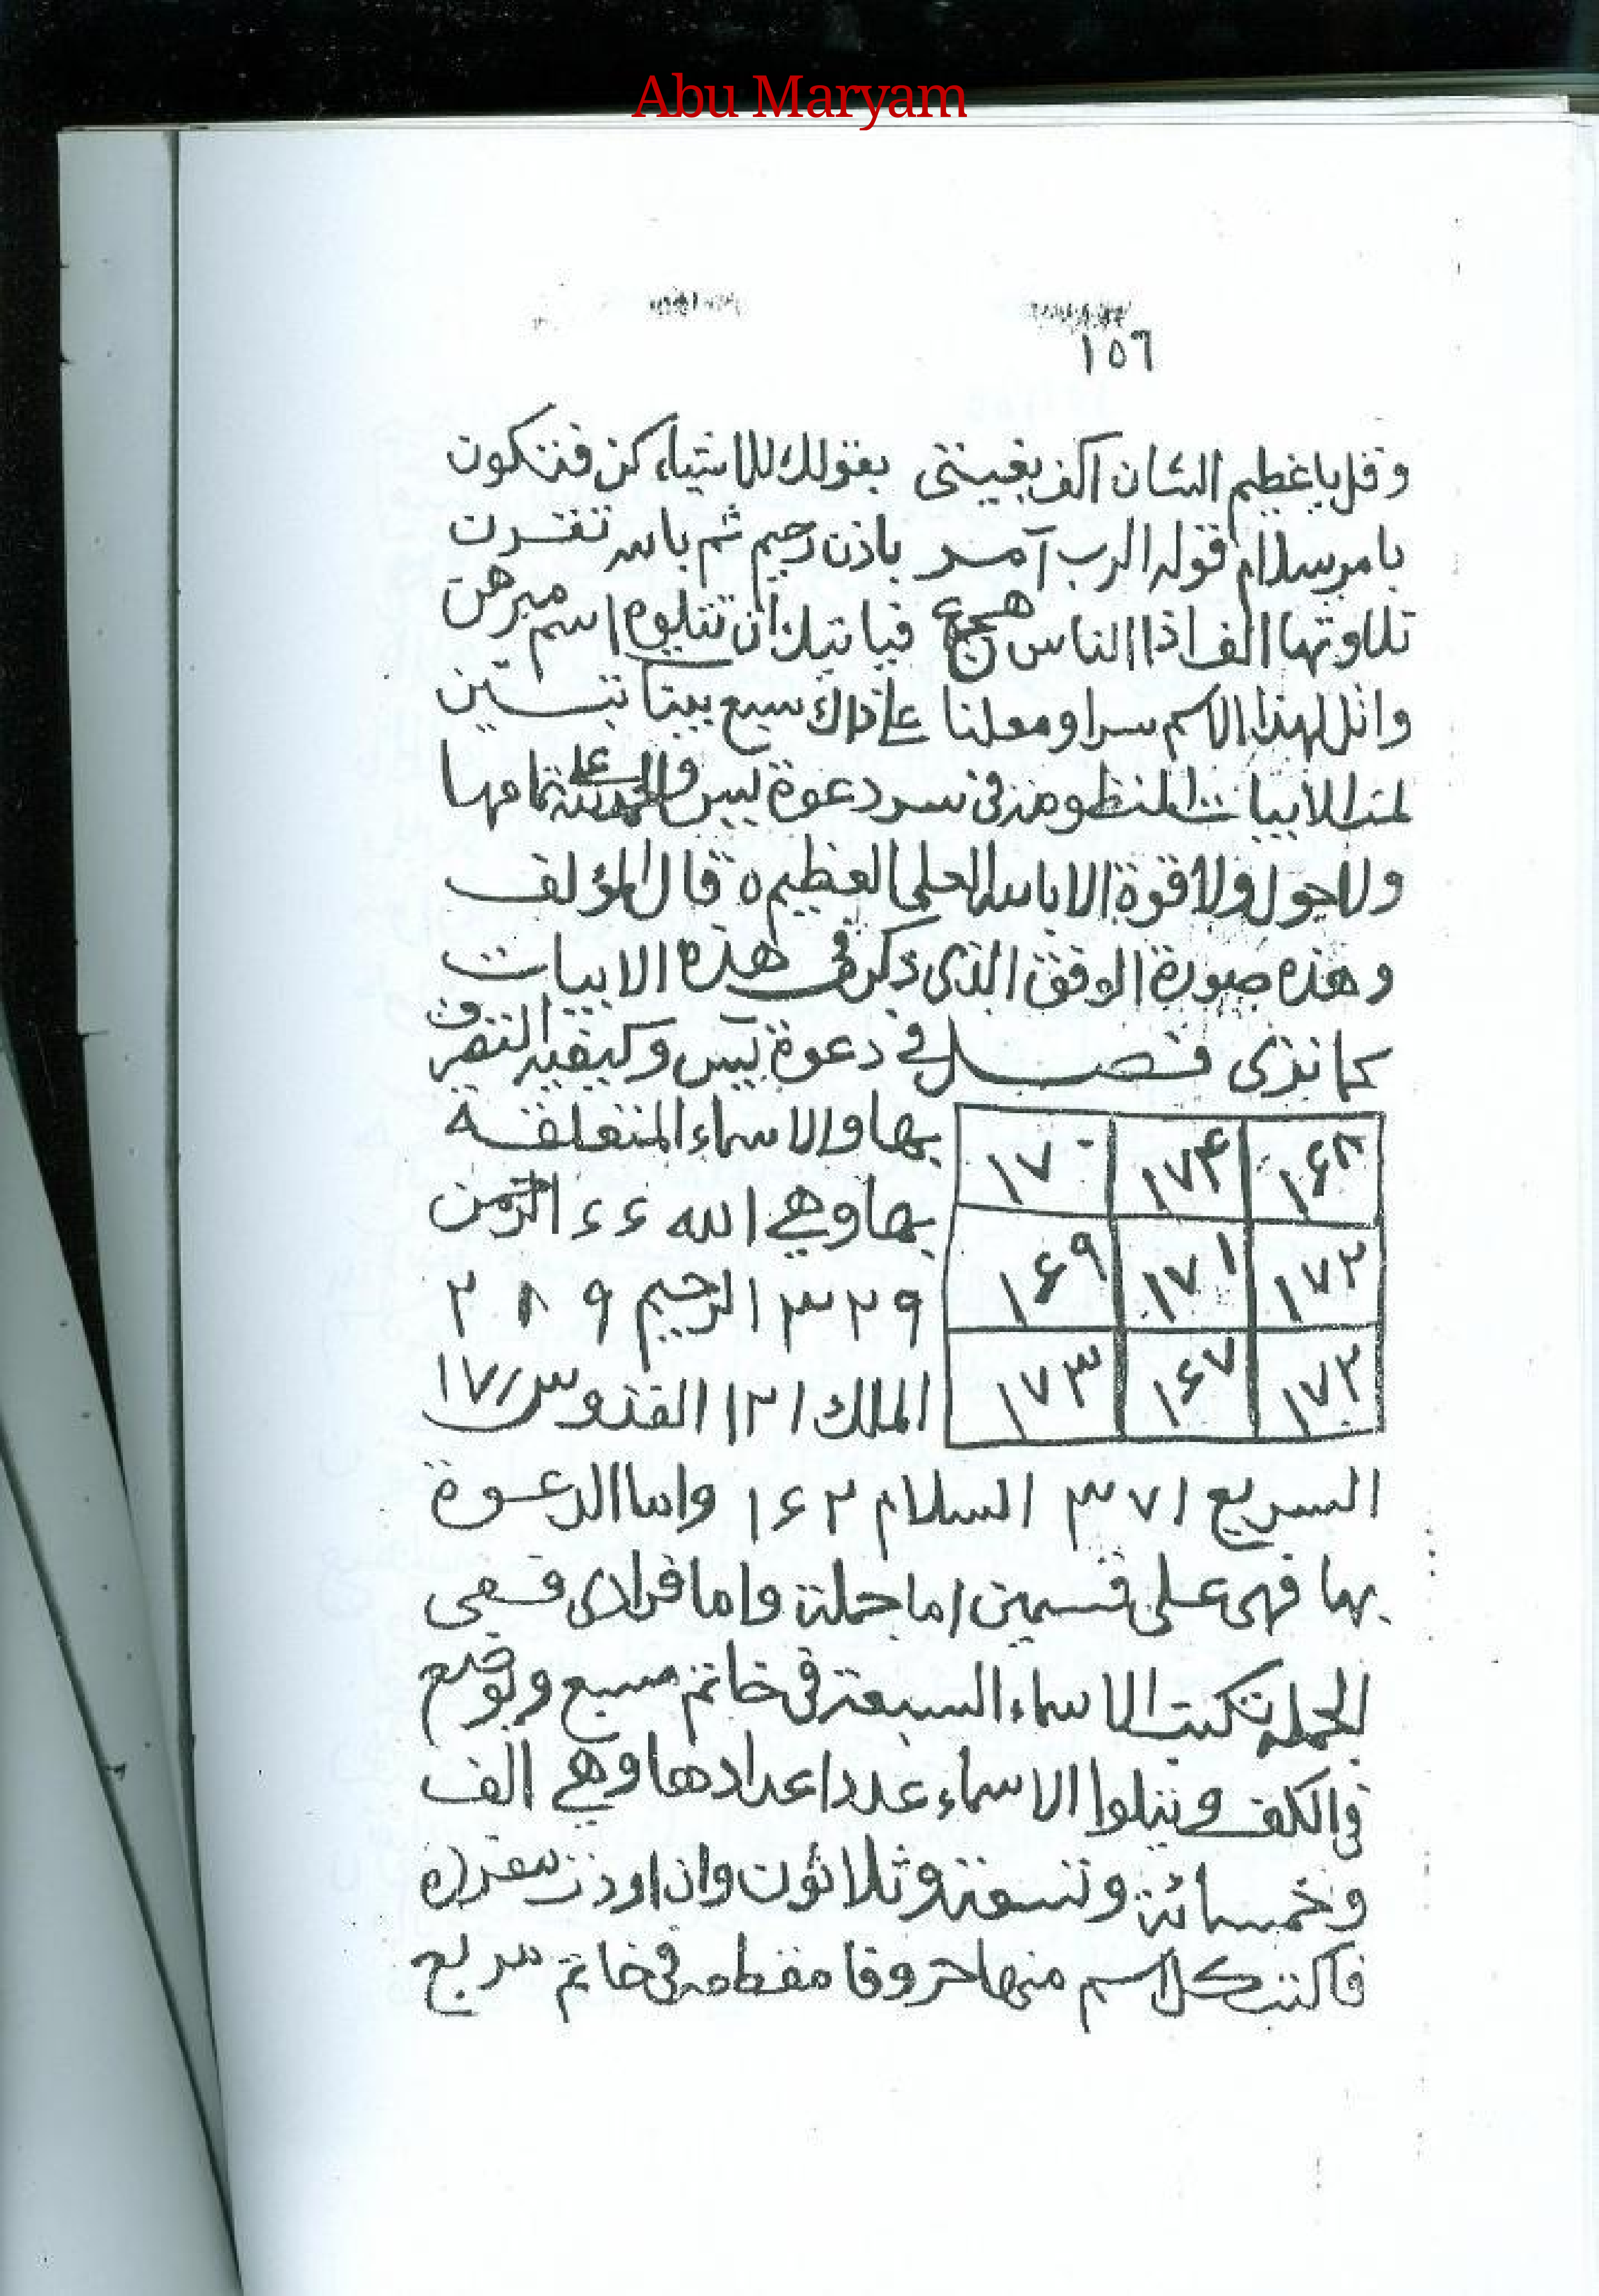 Abu Maryam
١٥٦
وقل يا عظيم الشان اكف بغيتى بقولك للاشياء كن فتكون
بامر سلام قوله الرب آمر باذن رحيم ثم بالله تقدرت
تلاوتها الف اذا الناس هجع فياتيك ان تتلوه اسم مبرهن
واتل لهذا الاسم سرا ومعلنا على ذاك سبع بيتا تبستين
تمت الابيات المنظومة فى سر دعوة يس والحمد لله على تمامها
ولا حول ولا قوة الا بالله العلى العظيم ه قال المؤلف
وهذه صورة الوفق الذى ذكر فى هذه الابيات
كما ترى فصل فى دعوة يس وكيفية التصرف
بها والاسماء المتعلقة
بها وهي الله ٤٤ الرحمن
٣٢٩ الرحيم ٢٨٩
الملك ١٢١ القدوس ١٧١
١٦٨ ١٧٤ ١٧٠
١٧٢ ١٧١ ١٦٩
١٧٢ ١٦٧ ١٧٣
السريع ٣٧١ السلام ١٦٢ واما الدعوة
بها فهى على قسمين اما جملة واما فرادى فهى
الجملة تكتب الاسماء السبعة فى خاتم مسبع وتوضع
فى الكف ويتلوا الاسماء عدد اعدادها وهي الف
وخمسمائة وتسعة وثلاثون وان اردت
فاكتب كل اسم منها حروفا مقطعه فى خاتم مربع